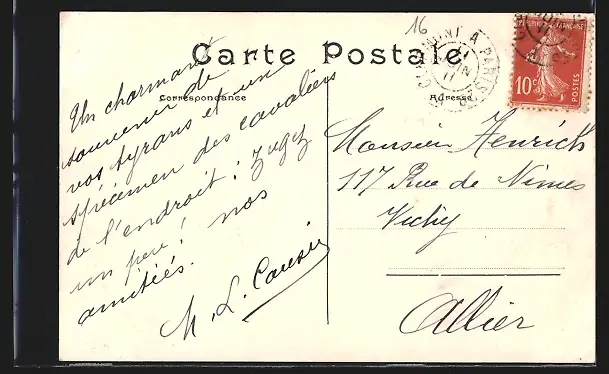 16
Carte Postale
Correspondance
Adresse
Un charmant
souvenir de
vos tyrans et un
spécimen des cavaliers
de l'endroit : jugez
un peu ! nos
amitiés.
M. L.
Monsieur Henrich
117 Rue de Nîmes
Vichy
Allier
A PARIS
11
10c
POSTES